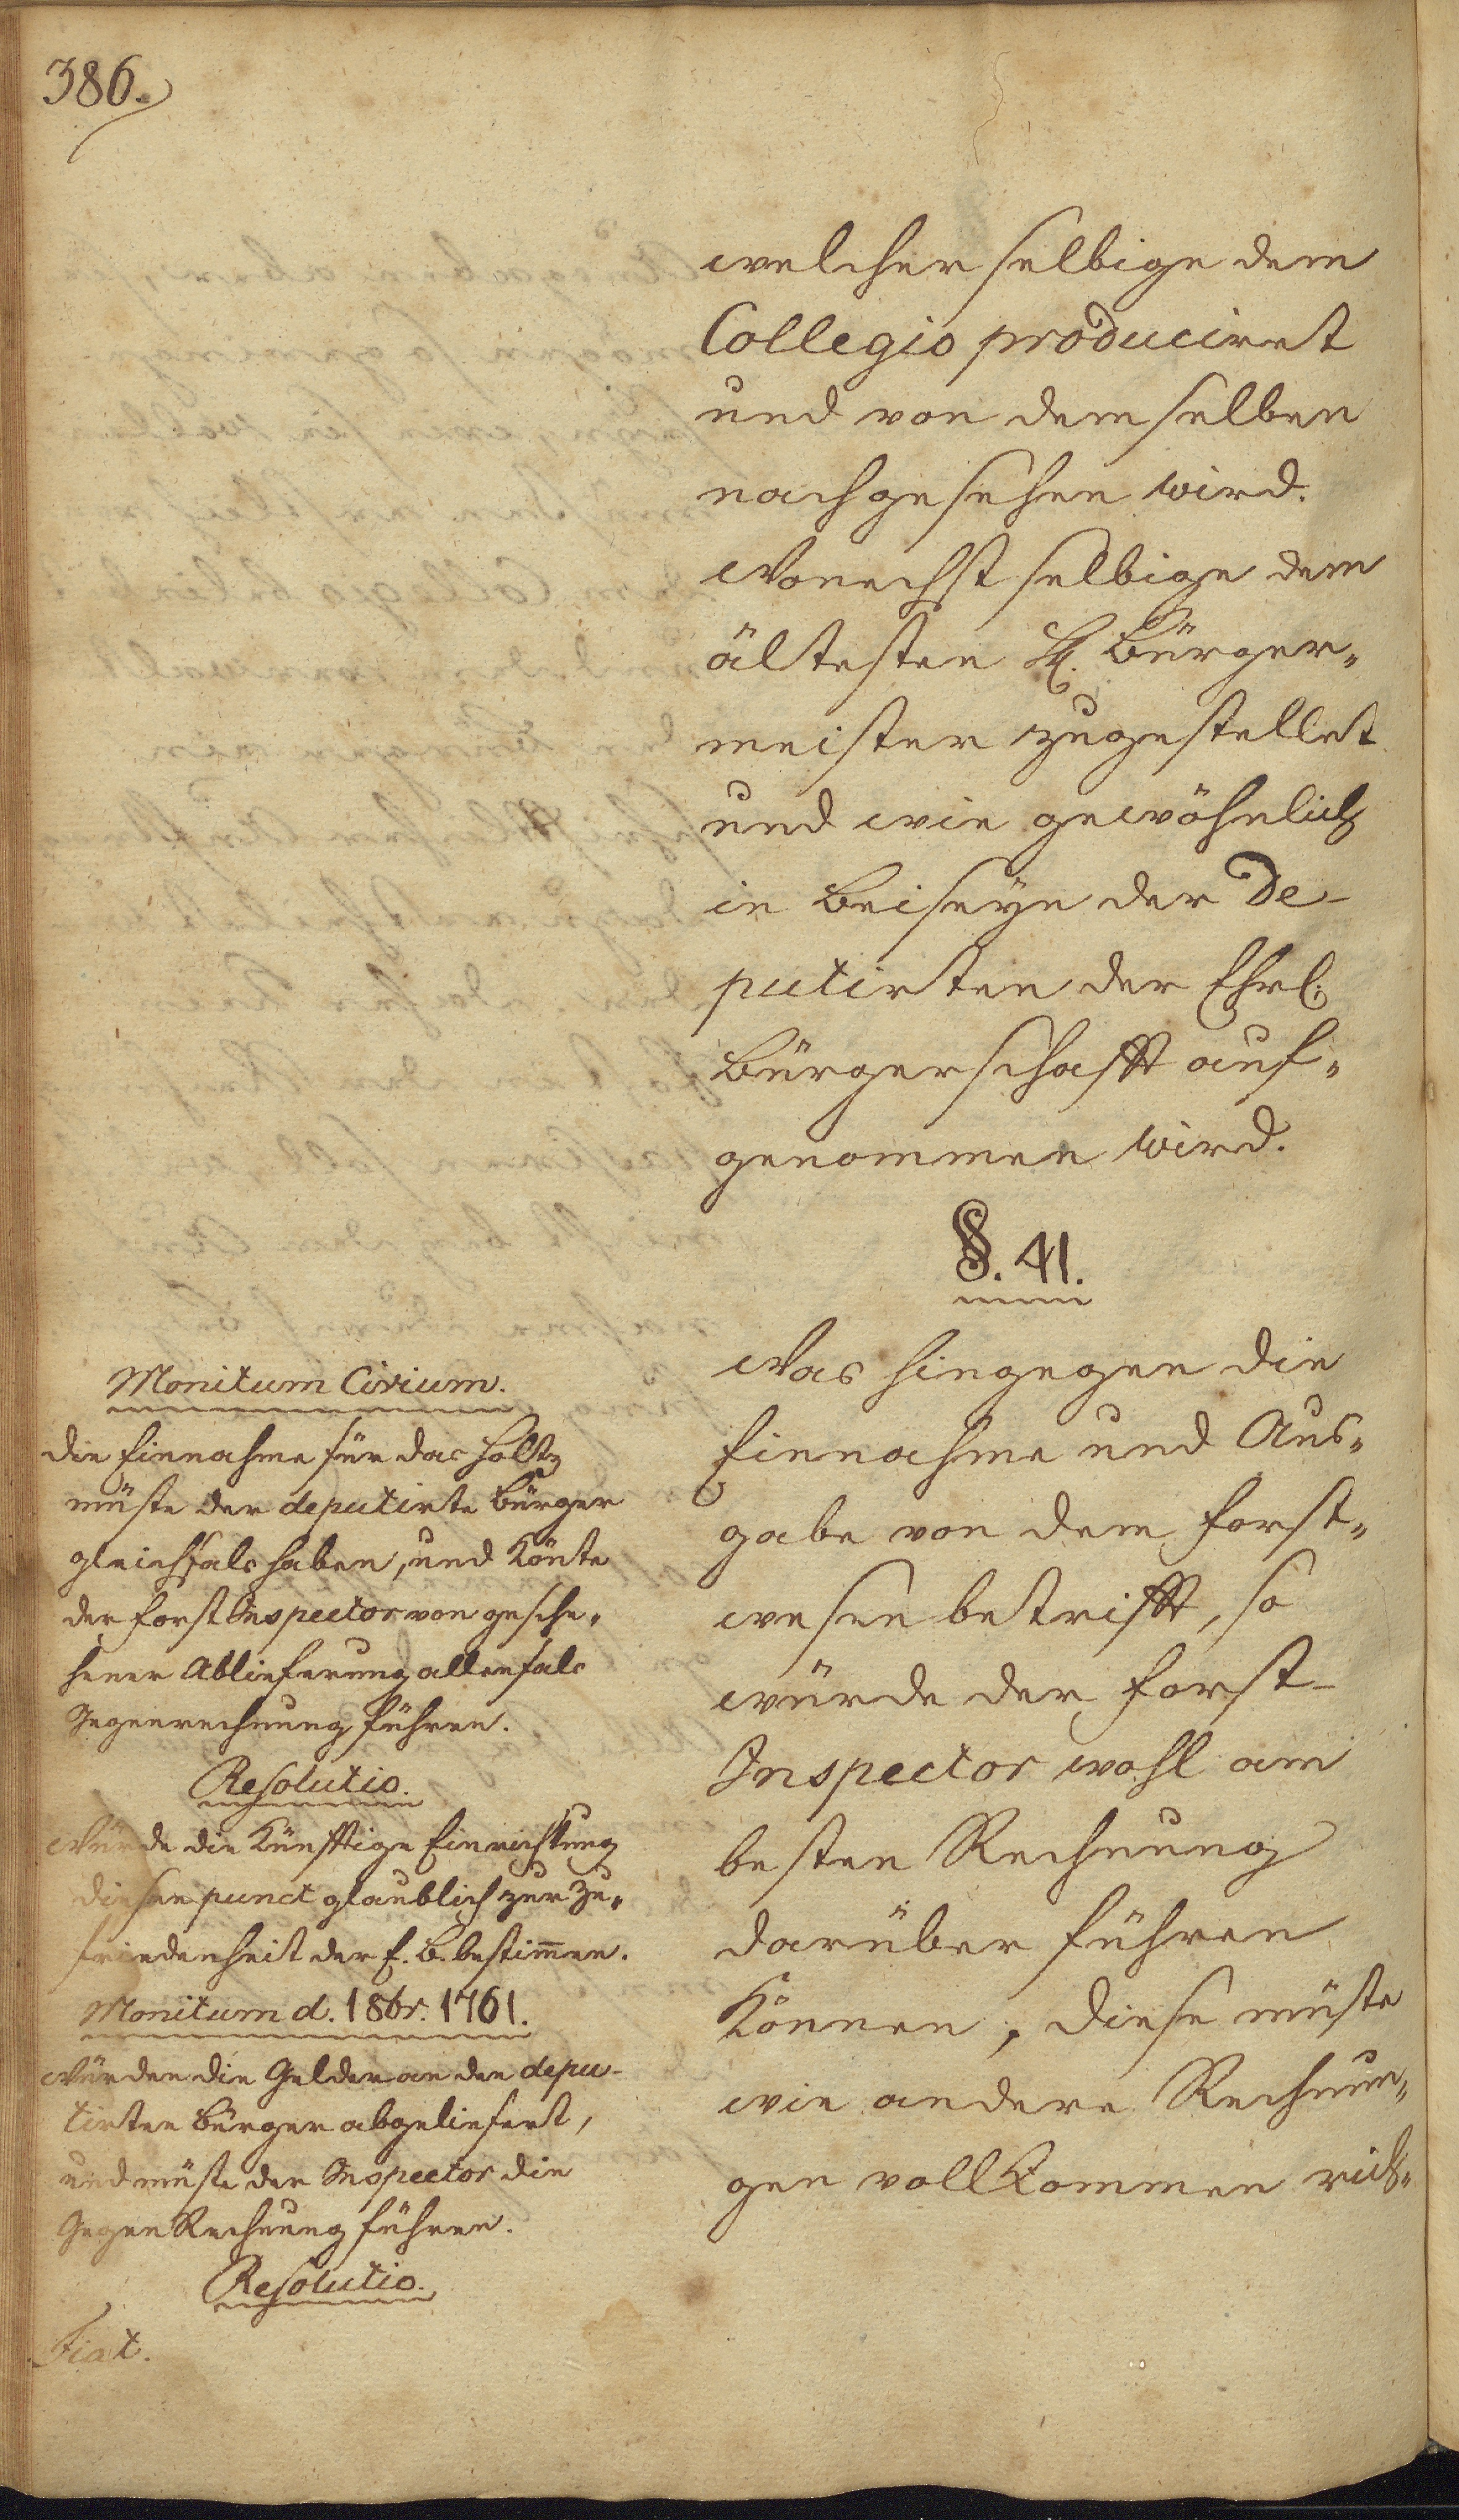 386.
welcher selbige dem
Collegio produciret
und von demselben
nachgesehen wird.
Wonechst selbige dem
ältesten H. Bürger„
meister zugestellet
und wie gewöhnlich
in Beiseyn der De-
putirten der Ehrl.
Bürgerschafft auf„
genommen wird.
§. 41.
Was hingegen die
Einnahme und Aus„
gabe von dem Forst„
wesen betrifft, so
würde der Forst-
Inspector wohl am
besten Rechnung
darüber führen
Können, diese müste
wie andere Rechnun„
gen vollKommen rich„
Monitum Civium.
Die Einnahme für das Holtz
müste der deputirte Bürger
gleichfals haben, und Könte
der Forst Inspector von gesche„
hener Ablieferung allenfals
Gegenrechnung führen.
Resolutio.
Würde die Künfftige Einrichtung
diesen punct glaublich zur Zu„
friedenheit der E. B. bestim̄en.
Monitum d. 1 8br. 1761.
Würden die Gelder an den depu-
tirten Bürger abgeliefert,
und müste der Inspector die
Gegen Rechnung führen.
Resolutio.
Fiat.